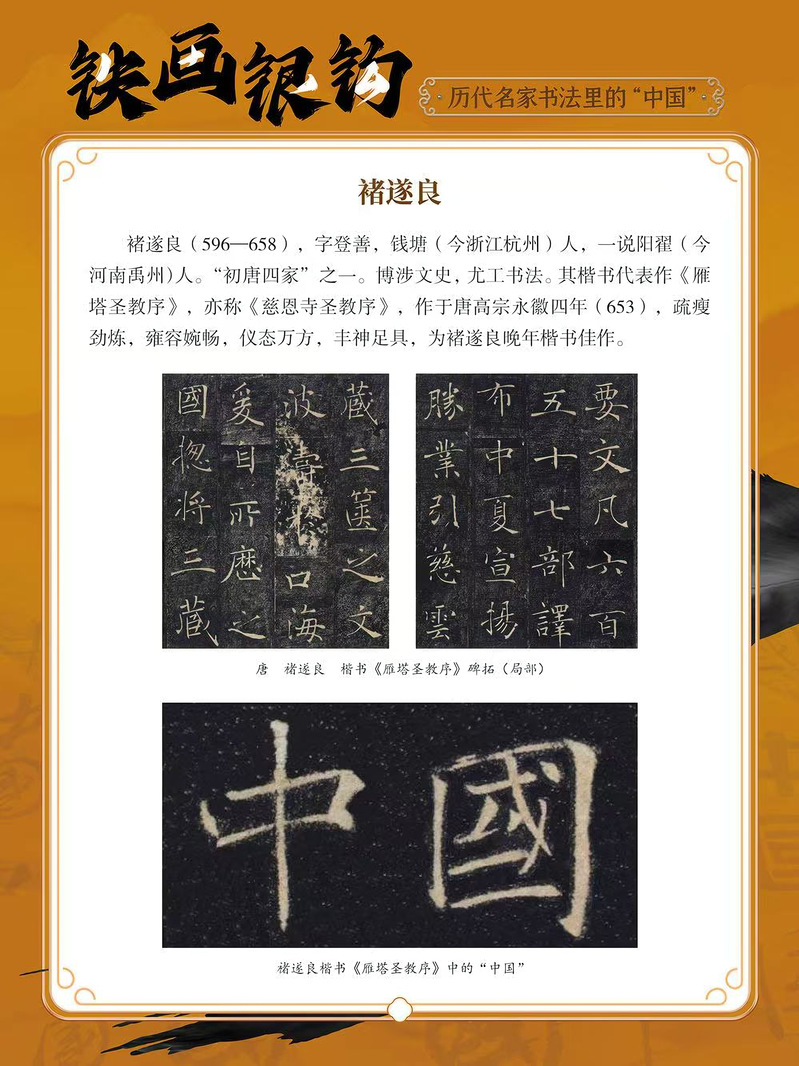 铁画银钩
历代名家书法里的“中国”
褚遂良
褚遂良（596—658），字登善，钱塘（今浙江杭州）人，一说阳翟（今
河南禹州)人。“初唐四家”之一。博涉文史，尤工书法。其楷书代表作《雁
塔圣教序》，亦称《慈恩寺圣教序》，作于唐高宗永徽四年（653），疏瘦
劲炼，雍容婉畅，仪态万方，丰神足具，为褚遂良晚年楷书佳作。
藏三箧之文
波濤於口海
爰自所歷之
國揔将三藏
要文凡六百
五十七部譯
布中夏宣揚
勝業引慈雲
唐 褚遂良 楷书《雁塔圣教序》碑拓（局部）
中國
褚遂良楷书《雁塔圣教序》中的“中国”